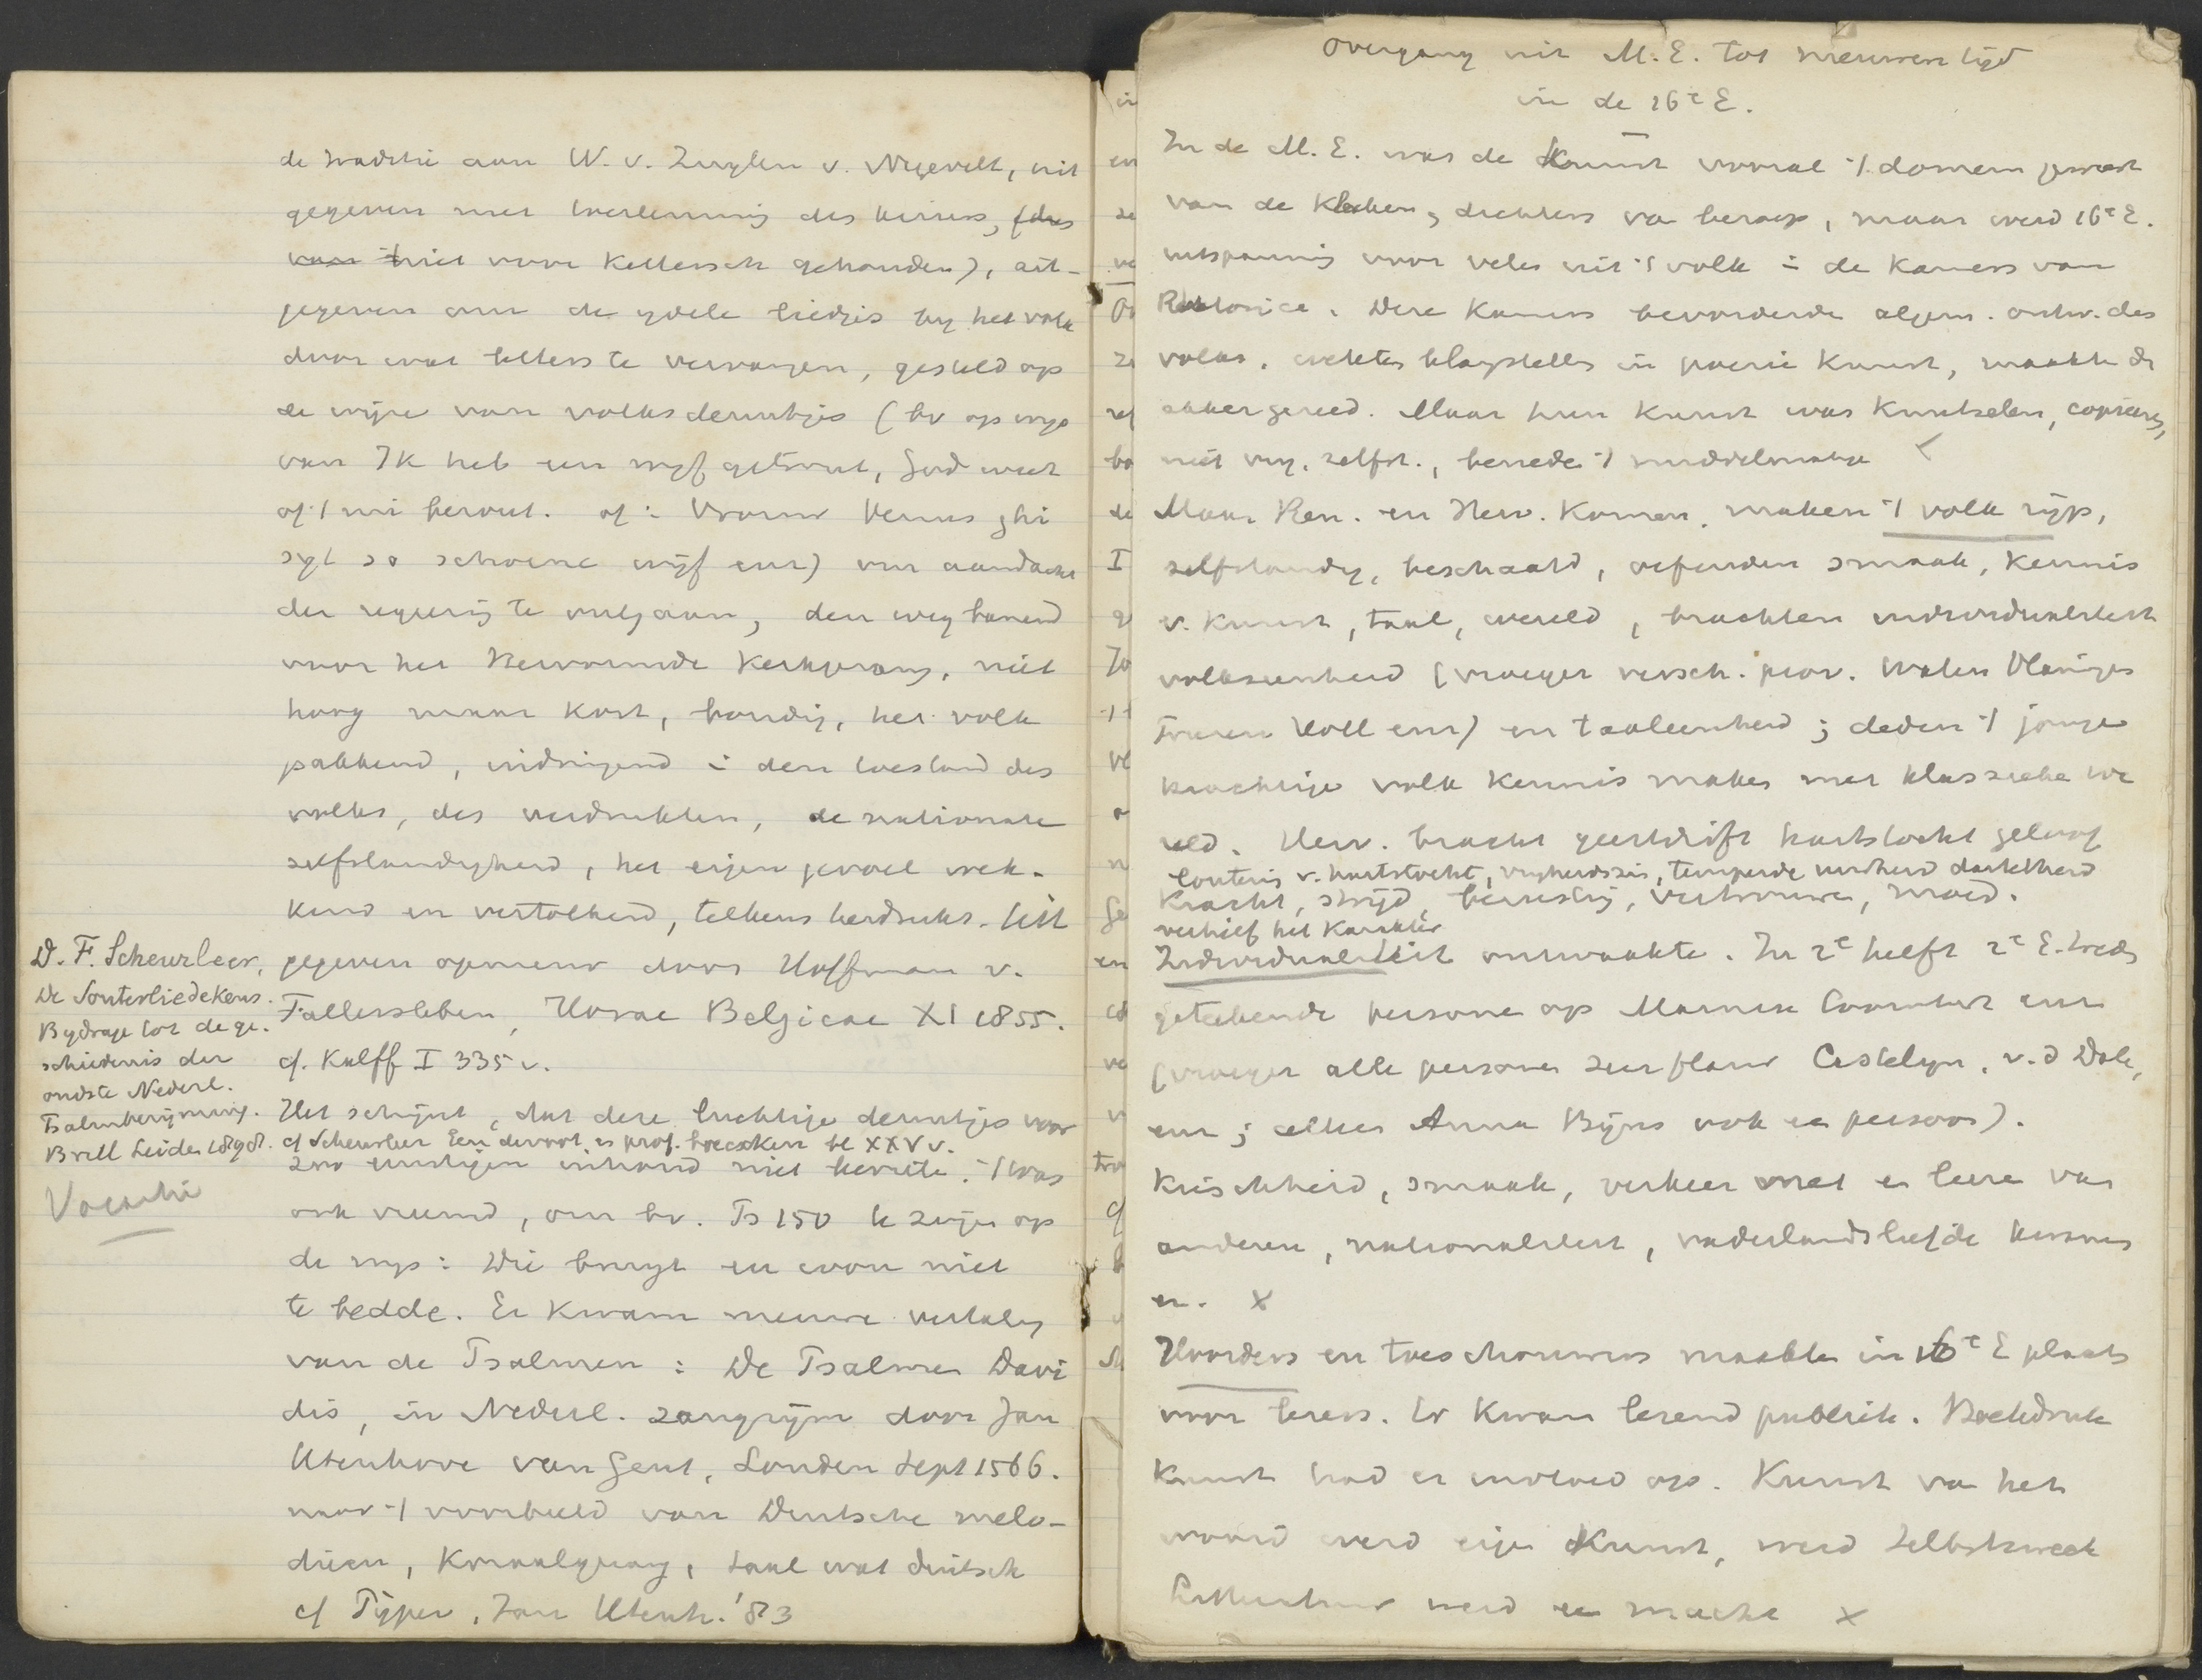 de traditie aan W. v. Zuylen v. Nyevelt, uit
gegeven met toestemming des keizers, (dus
van niet voor kettersch gehouden), uit-
gegeven om de ydele liedjes by het volk
door wat betters te vervangen, gesteld op
de wijze van volksdeuntjes (bv op wys
van Ik heb een wyf getrout, God weet
of 't mi berout. of: Vrouw Venus ghi
syt so schoene wijf enz) om aandacht
der regeering te ontgaan, den weg banend
voor het Hervormde Kerkgezang, niet
hoog maar kort, bondig, het volk
pakkend, indringend i den toestand des
volks, des verdrukten, de nationale
zelfstandigheid, het eigen gevoel wek-
kend en vertolkend, telkens herdrukt. Uit
gegeven opnieuw door Hoffman v.
Fallersleben, Horae Belgicae XI 1855.
cf. Kalff I 335 v.
Het schijnt, dat deze luchtige deuntjes voor
cf Scheurleer Een devoot en prof. boecxken bl XXV v.
zoo ernstigen inhoud niet hinderde. 't Was
ook vreemd, om bv. Ps 150 te zingen op
de wys: Die bruyt en wou niet
te bedde. Er kwam nieuwe vertaling
van de Psalmen: De Psalmen Davi
dis, in Nederl. zangrijm door Jan
Utenhove van Gent, Londen Sept 1566.
naar 't voorbeeld van Deutsche melo-
dieen, Koraalgezang, taal wat duitsch
cf Pijper, Jan Utenh. '83
D. F. Scheurleer,
De Souterliedekens.
Bydrage tot de ge-
schiedenis der
oudste Nederl.
Psalmberijming.
Brill Leiden 1898.
Overgang uit M.E. tot nieuwen tijd
in de 16e E.
In de M.E. was de Kunst vooral 't domein geweest
van de Klerken, dichters van beroep, maar werd 16e E.
uitspanning voor velen uit 't volk i de Kamers van
Rhetorica. Deze Kamers bevorderde algem. ontw. des
volks, wekten belangstelling in poezie kunst, maakte de
akker gereed. Maar hun kunst was knutselen, copieeren,
niet vry, zelfst., beneden 't middelmatige
Maar Ren. en Herv. komen, maken 't volk rijp,
zelfstandig, beschaafd, verfynden smaak, kennis
v. kunst, taal, wereld, brachten individualiteit
volkseenheid (vroeger versch. prov. Walen Vlamingen
Friezen Holl enz) en taaleenheid; deden 't jonge
krachtige volk kennis maken met klassieke we
reld. Herv. bracht geestdrift hartstocht geloof
loutering v. hartstocht, vryheidszin, temperde ruwheid dartelheid
Kracht, strijd, berusting, vertrouwen, moed.
verhief het Karakter
Individualiteit ontwaakte. In 2e helft 2e E. treden
geteekende personen op Marnix Coornhert enz
(vroeger alle personen zeer flauw Castelyn, v.d Dale,
enz; alleen Anna Bijns ook een persoon).
Krischheid, smaak, verkeer met en leere van
anderen, nationaliteit, vaderlandsliefde kwamen
er. x
Hoorders en toeschouwers maakten in 16e E plaats
voor lezers. Er kwam lezend publiek. Boekdruk
kunst had er invloed op. Kunst van het
woord werd eigen Kunst, werd Selbstzweck
Litteratuur werd een macht x